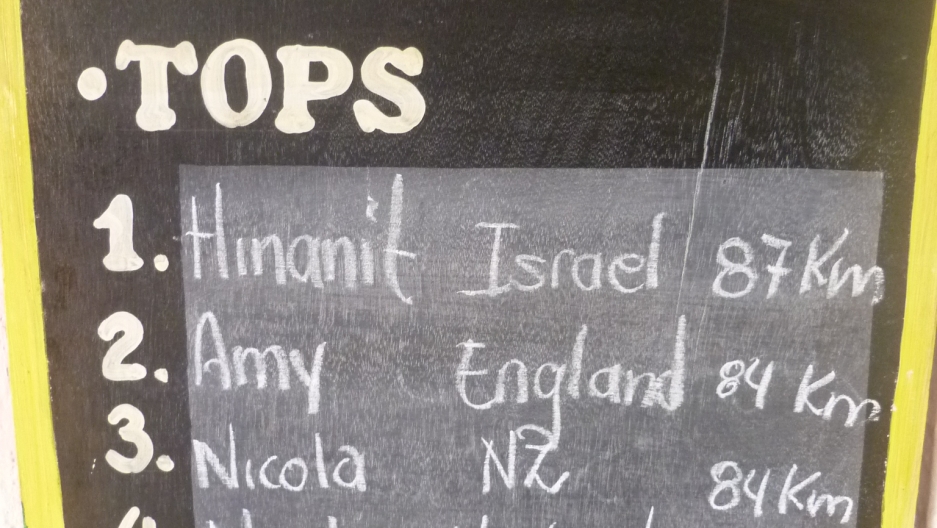 ·TOPS
1. Hinanit Israel 87Km
2. Amy England 84 Km
3. Nicola NZ 84Km